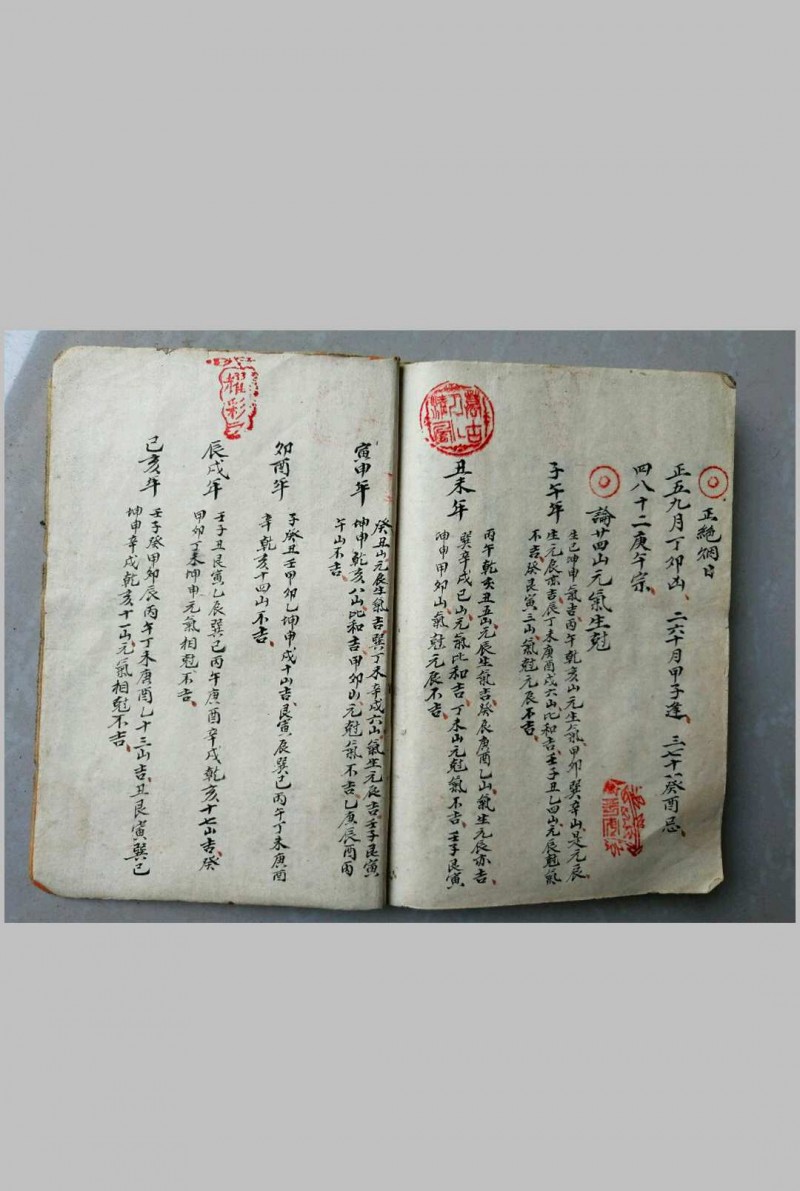 正絕烟日
正五九月丁卯凶、二六十月甲子逢、三七十一癸酉忌、
四八十二庚午宗、
論廿四山元氣生尅
子午年
生巳坤申氣吉丙午乾亥山元生氣甲卯巽辛山是元辰
生元辰亦吉辰丁未庚酉戌六山比和吉壬子丑乙四山元辰尅氣
不吉癸艮寅三山氣尅元辰不吉
丑未年
丙午乾亥丑五山元辰生氣吉癸辰庚酉乙山氣生元辰亦吉
巽辛戌巳山元氣比和吉丁未山元尅氣不吉壬子艮寅
坤申甲卯山氣尅元辰不吉
寅申年
癸丑山元辰生氣吉巽丁未辛戌六山氣生元辰吉壬子艮寅
坤申乾亥八山比和吉甲卯山元尅氣不吉乙庚辰酉丙
午山不吉
卯酉年
子癸丑壬甲卯乙坤申戌十山吉艮寅辰巽巳丙午丁未庚酉
辛乾亥十四山不吉
辰戌年
壬子丑艮寅乙辰巽巳丙午庚酉辛戌乾亥十七山吉癸
甲卯丁未坤申元氣相尅不吉
巳亥年
壬子癸甲卯辰丙午丁未庚酉乙十三山吉丑艮寅巽巳
坤申辛戌乾亥十一山元氣相尅不吉
耀彩